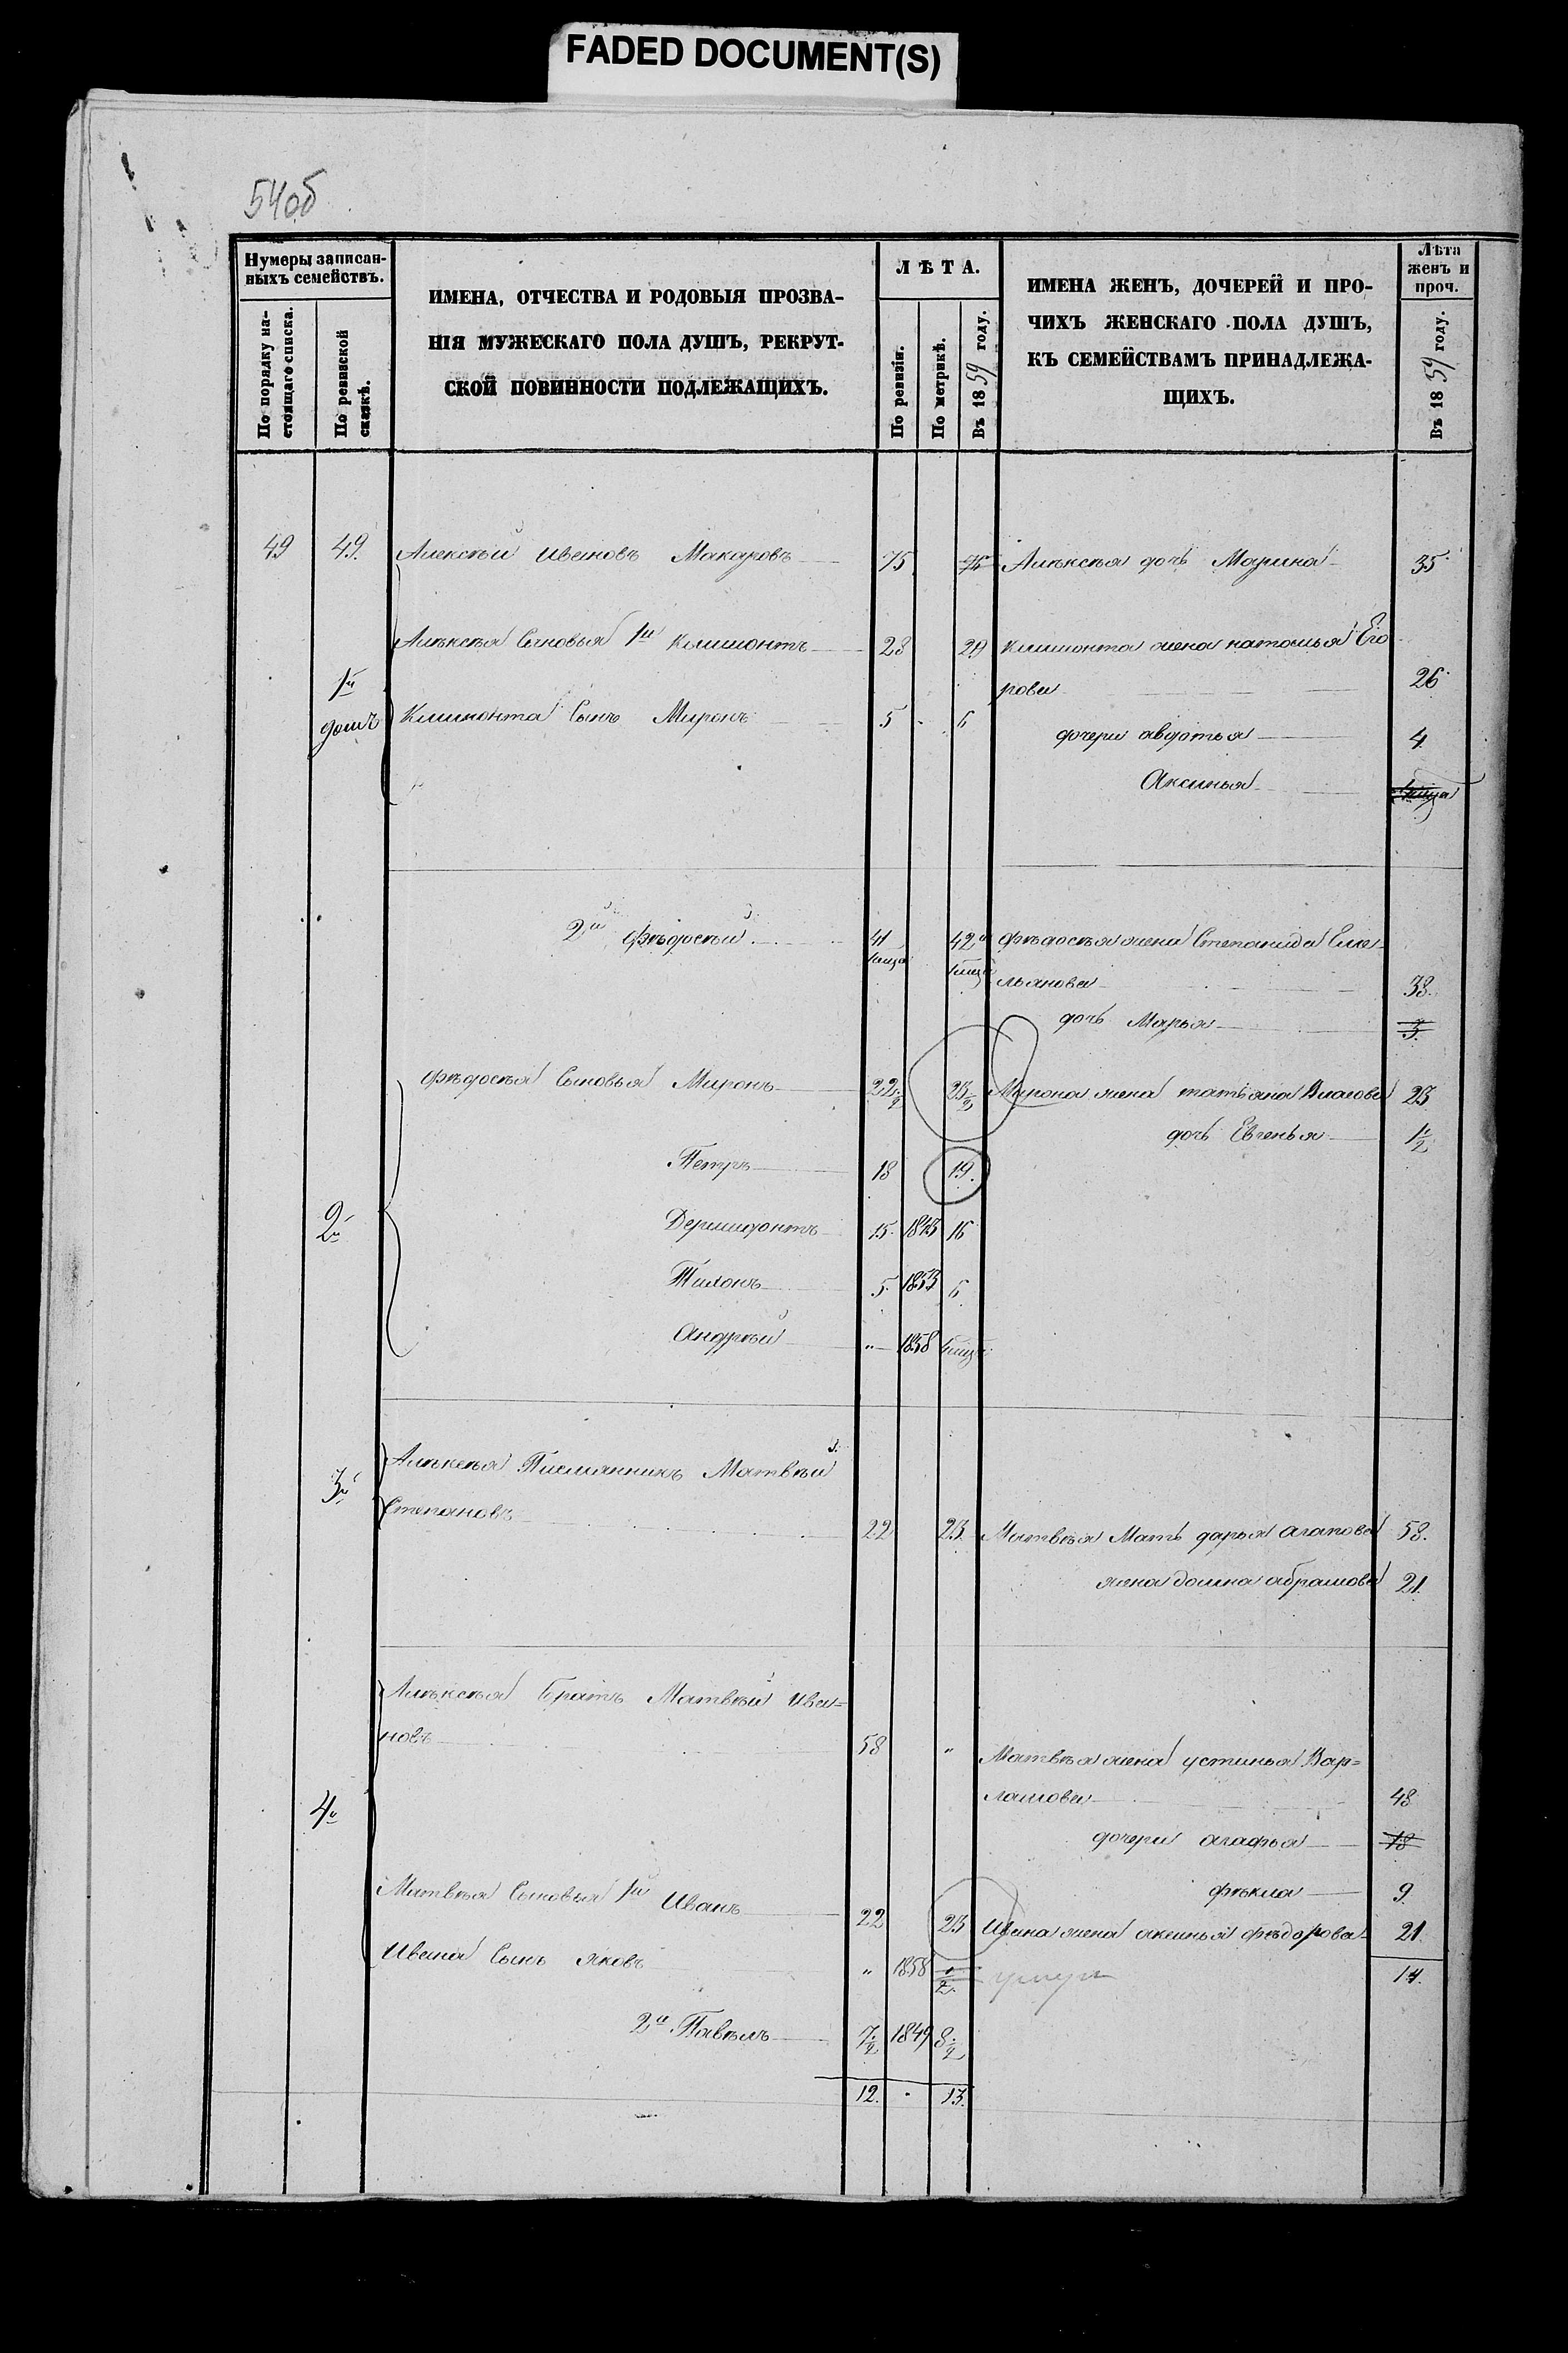 FADED DOCUMENT(S)
54об
Нумеры записан-
ныхъ семействъ.
По порядку на-
стоящаго списка.
По ревизской
сказкѣ.
ИМЕНА, ОТЧЕСТВА И РОДОВЫЯ ПРОЗВА-
НІЯ МУЖЕСКАГО ПОЛА ДУШЪ, РЕКРУТ-
СКОЙ ПОВИННОСТИ ПОДЛЕЖАЩИХЪ.
ЛѢТА.
По ревизіи.
По метрикѣ.
Въ 1859 году.
ИМЕНА ЖЕНЪ, ДОЧЕРЕЙ И ПРО-
ЧИХЪ ЖЕНСКАГО ПОЛА ДУШЪ,
КЪ СЕМЕЙСТВАМЪ ПРИНАДЛЕЖА-
ЩИХЪ.
Лѣта
женъ и
проч.
Въ 1859 году.
49 49. Алексѣй Ивановъ Макаровъ 75 76 Алѣксѣя дочь Марина 35
Алѣксѣя Сыновья 1й Климонтъ 28 29 Климонта жена наталья Его
рова 26
1й
домъ
Климонта Сынъ Миронъ 5 6
дочери авдотья 4
Аксинья
2й Фѣдосѣй 41 42 Фѣдосѣя жена Степанида Еме-
льянова 38.
дочь Марья 3
Фѣдосѣя Сыновья Миронъ 22½ 23½ Мирона жена татьяна Власова 23
дочь Евгенья ½
Петръ 18 19.
2й
Дермидонтъ 15. 1843 16
Тихонъ 5. 1853 6
Андрѣй " 1858
3й
Алѣксѣя Племянникъ Матвѣй
Степановъ 22 23 Матвѣя Мать дарья агапова 58.
жена домна абрамова 21.
Алѣксѣя братъ Матвѣй Ива=
новъ 58 "
Матвѣя жена устинья Вар=
ламова 48
4й
дочери агафья 18
Матвѣя Сыновья 1й Иванъ 22 23
фѣкла 9
Ивана жена аксинья фѣдорова 21
Ивана Сынъ яковъ " 1858 ½ умеръ 14.
2й Павѣлъ 7½ 1849 8½
12. 13.